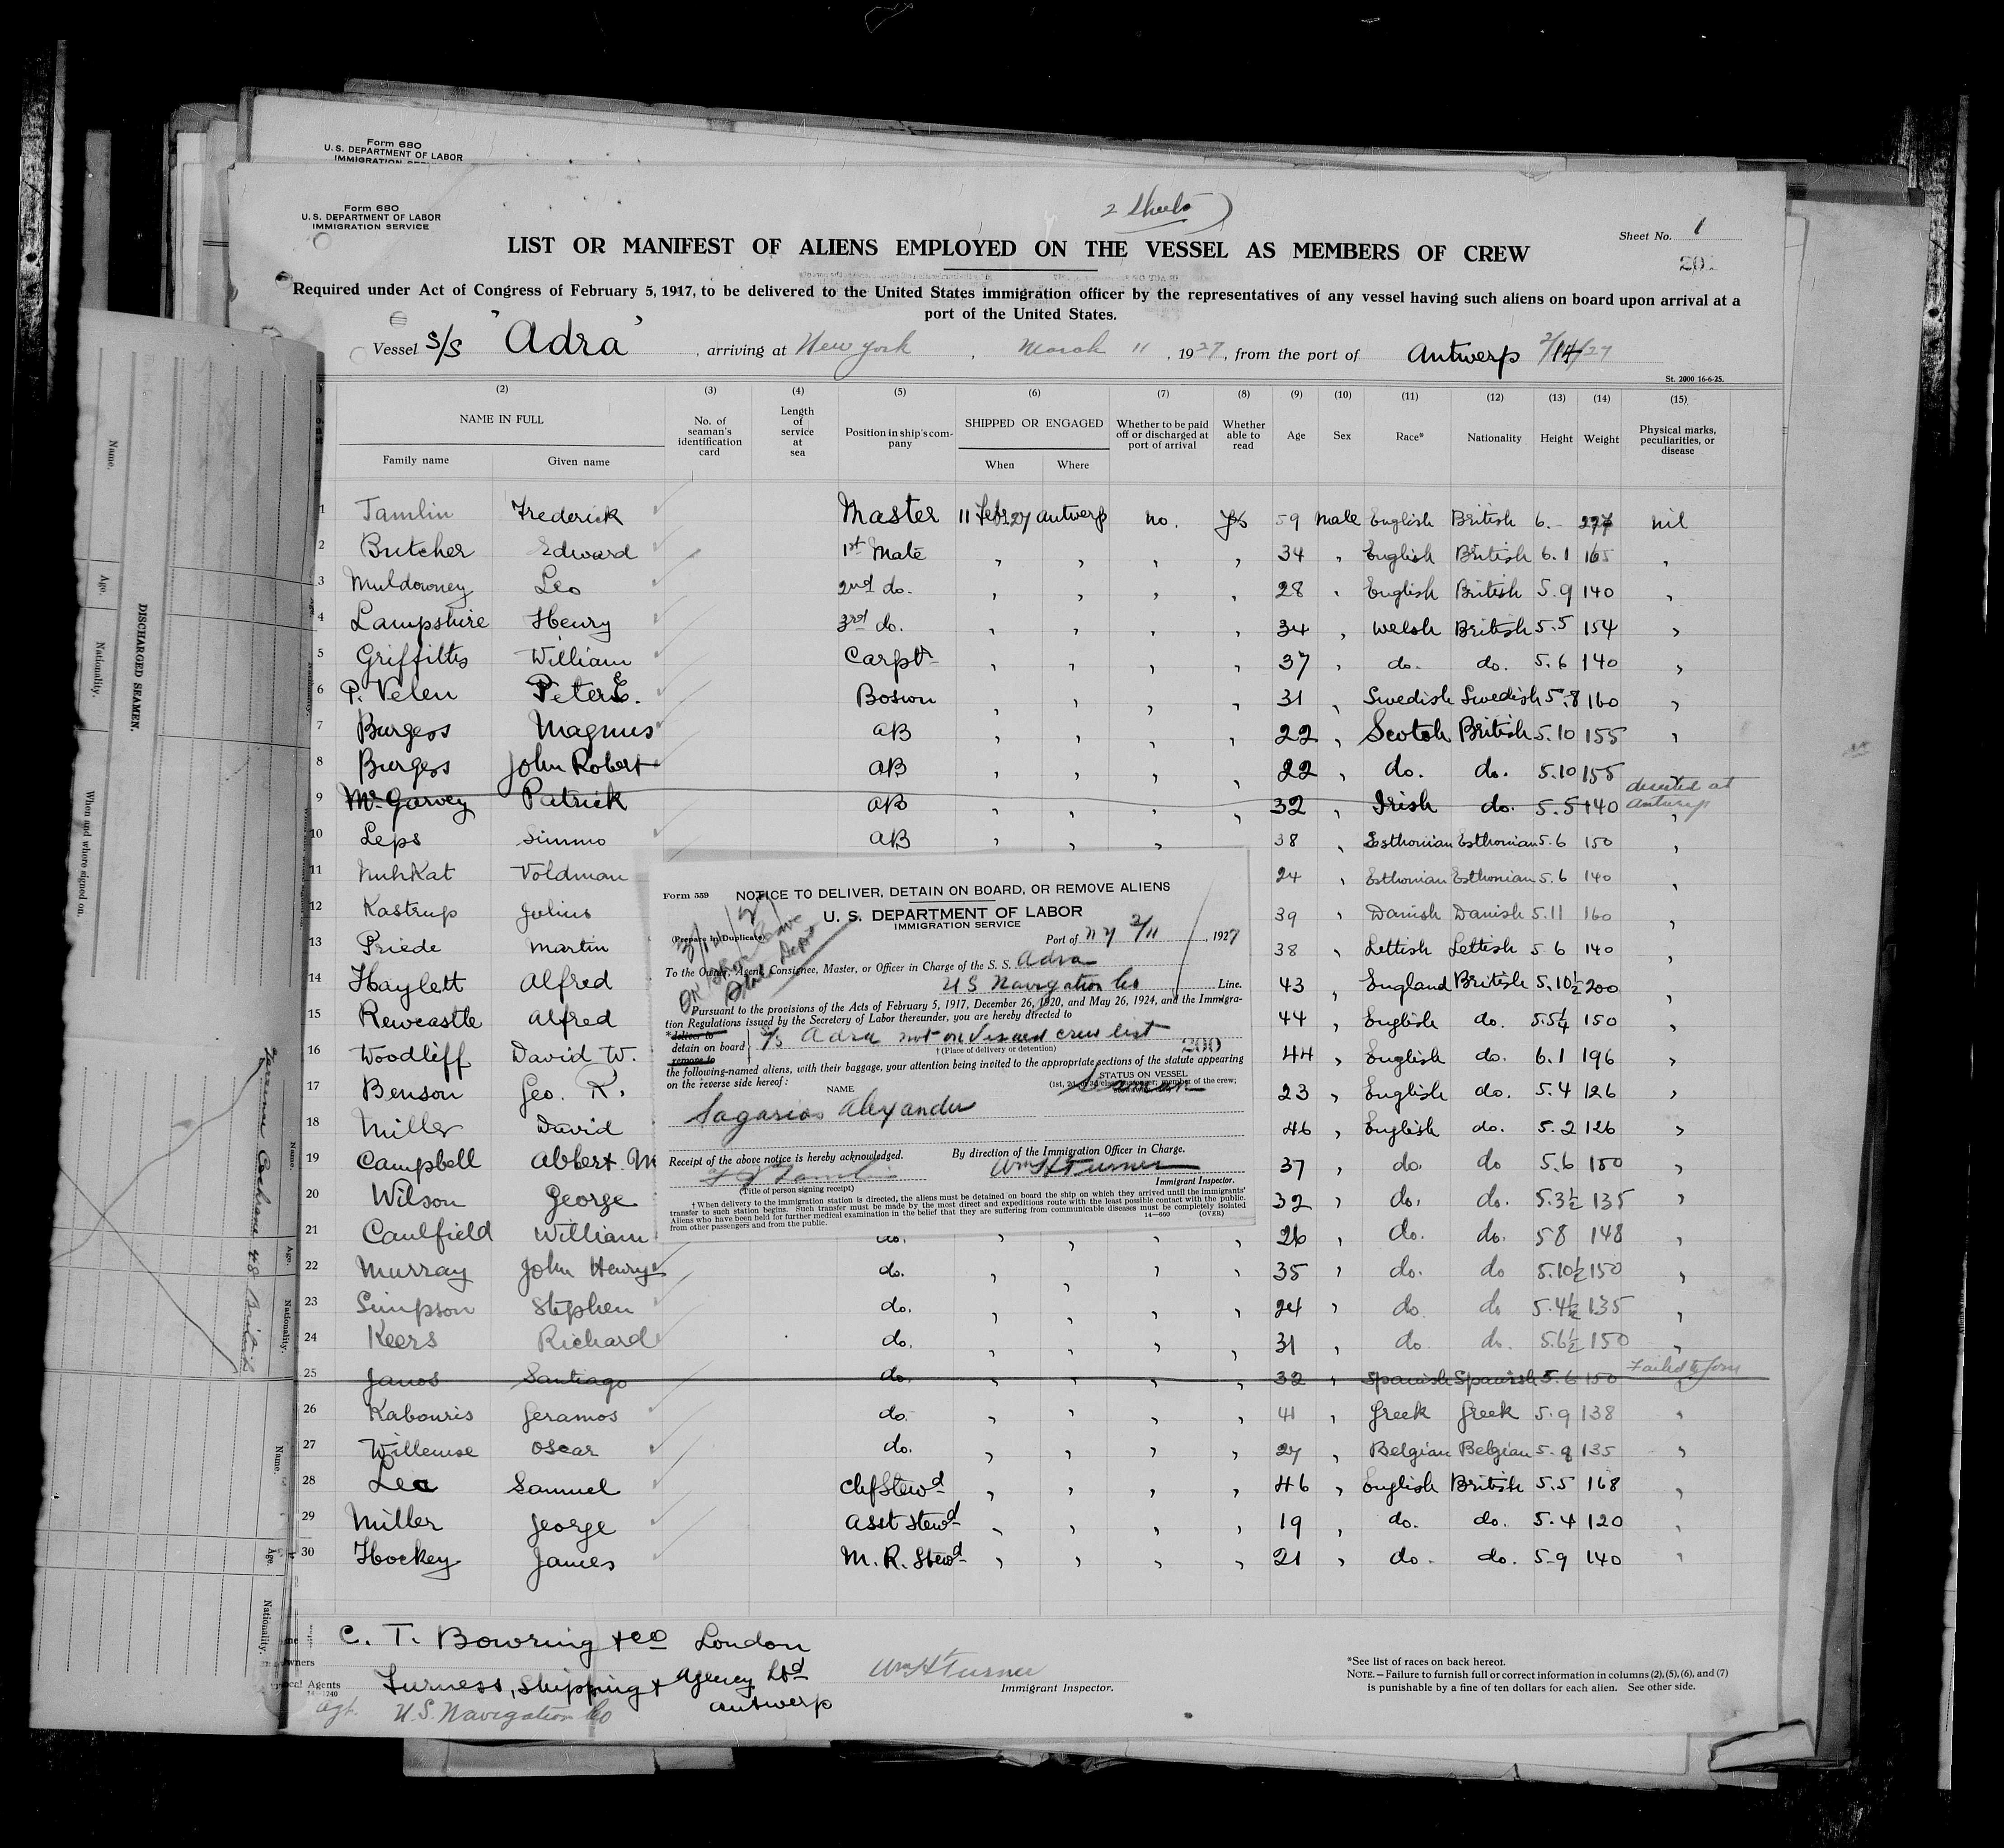 Form 680
U. S. DEPARTMENT OF LABOR
IMMIGRATION SERVICE
Form 680
U. S. DEPARTMENT OF LABOR
IMMIGRATION SERVICE
2 Sheets
Sheet No. 1
LIST OR MANIFEST OF ALIENS EMPLOYED ON THE VESSEL AS MEMBERS OF CREW
Required under Act of Congress of February 5, 1917, to be delivered to the United States immigration officer by the representatives of any vessel having such aliens on board upon arrival at a
port of the United States.
Vessel S/S "Adra", arriving at New York, March 11, 1927, from the port of Antwerp 2/14/27
St. 2000 16-6-25.
(2) (3) (4) (5) (6) (7) (8) (9) (10) (11) (12) (13) (14) (15)
NAME IN FULL No. of seaman's identification card Length of service at sea Position in ship's company SHIPPED OR ENGAGED Whether to be paid off or discharged at port of arrival Whether able to read Age Sex Race* Nationality Height Weight Physical marks, peculiarities, or disease
Family name Given name When Where
1 Tamlin Frederick Master 11 Feb 27 Antwerp no. yes 59 male English British 6.- 227 nil
2 Butcher Edward 1st Mate " " " " 34 " English British 6.1 165 "
3 Muldowney Leo 2nd do. " " " " 28 " English British 5.9 140 "
4 Lampshire Henry 3rd do. " " " " 34 " Welsh British 5.5 154 "
5 Griffiths William Carptr " " " " 37 " do. do. 5.6 140 "
6 P. Velen Peter E. Bosun " " " " 31 " Swedish Swedish 5.8 160 "
7 Burgess Magnus AB " " " " 22 " Scotch British 5.10 155 "
8 Burgess John Robert AB " " " " 22 " do. do. 5.10 155
9 McGarvey Patrick AB " " " " 32 " Irish do. 5.5 140 deserted at Antwerp "
10 Leps Simmo AB " " " 38 " Esthonian Esthonian 5.6 150 "
11 Voldman 24 " Esthonian Esthonian 5.6 140 "
12 Kastrup Julius 39 " Danish Danish 5.11 160 "
13 Priede Martin 38 " Lettish Lettish 5.6 140 "
14 Haylett Alfred 43 " England British 5.10½ 200 "
15 Rewcastle Alfred 44 " English do. 5.5¼ 150 "
16 Woodliff David W. 44 " English do. 6.1 196 "
17 Benson Geo. R. 23 " English do. 5.4 126 "
18 Miller David 46 " English do. 5.2 126 "
19 Campbell Albert. M 37 " do. do 5.6 150 "
20 Wilson George 32 " do. do. 5.3½ 135 "
21 Caulfield William do. " " " " 26 " do. do. 5 8 148 "
22 Murray John Henry do. " " " " 35 " do. do 5.10½ 150 "
23 Simpson Stephen do. " " " " 24 " do do 5.4½ 135 "
24 Keers Richard do. " " " " 31 " do do. 5.6½ 150 "
25 Janos Santiago do. " " " " 32 " Spanish Spanish 5.6 150 Failed to join "
26 Kabouris Geramos do. " " " " 41 " Greek Greek 5.9 138 "
27 Willemse Oscar do. " " " " 27 " Belgian Belgian 5.8 135 "
28 Lee Samuel Chf Stewd " " " " 46 " English British 5.5 168 "
29 Miller George Asst Stewd " " " " 19 " do. do. 5.4 120 "
30 Hockey James M. R. Stewd " " " " 21 " do. do. 5-9 140 "
Form 559 NOTICE TO DELIVER, DETAIN ON BOARD, OR REMOVE ALIENS
U. S. DEPARTMENT OF LABOR
IMMIGRATION SERVICE
(Prepare in Duplicate)
Port of NY 3/11, 1927
To the Owner, Agent, Consignee, Master, or Officer in Charge of the S. S. Adra
U S Navigation Co Line.
Pursuant to the provisions of the Acts of February 5, 1917, December 26, 1920, and May 26, 1924, and the Immigra-
tion Regulations issued by the Secretary of Labor thereunder, you are hereby directed to
*deliver to
detain on board S/S Adra not on visaed crew list
remove to
†(Place of delivery or detention)
200
the following-named aliens, with their baggage, your attention being invited to the appropriate sections of the statute appearing
on the reverse side hereof:
NAME STATUS ON VESSEL
Sagarios Alexander Seaman
Receipt of the above notice is hereby acknowledged. By direction of the Immigration Officer in Charge.
F J Tamlin Wm H Turner
(Title of person signing receipt) Immigrant Inspector.
†When delivery to the immigration station is directed, the aliens must be detained on board the ship on which they arrived until the immigrants'
transfer to such station begins. Such transfer must be made by the most direct and expeditious route with the least possible contact with the public.
Aliens who have been held for further medical examination in the belief that they are suffering from communicable diseases must be completely isolated
from other passengers and from the public. 14—660 (OVER)
C. T. Bowring & Co London
Furness, Shipping & Agency Ltd
Antwerp
Agents
Agt. U.S. Navigation Co
Wm H Turner
Immigrant Inspector.
*See list of races on back hereof.
NOTE.—Failure to furnish full or correct information in columns (2), (5), (6), and (7)
is punishable by a fine of ten dollars for each alien. See other side.
DISCHARGED SEAMEN.
Name. Age. Nationality. When and where signed on.
Name. Age. Nationality.
Name. Age. Nationality.